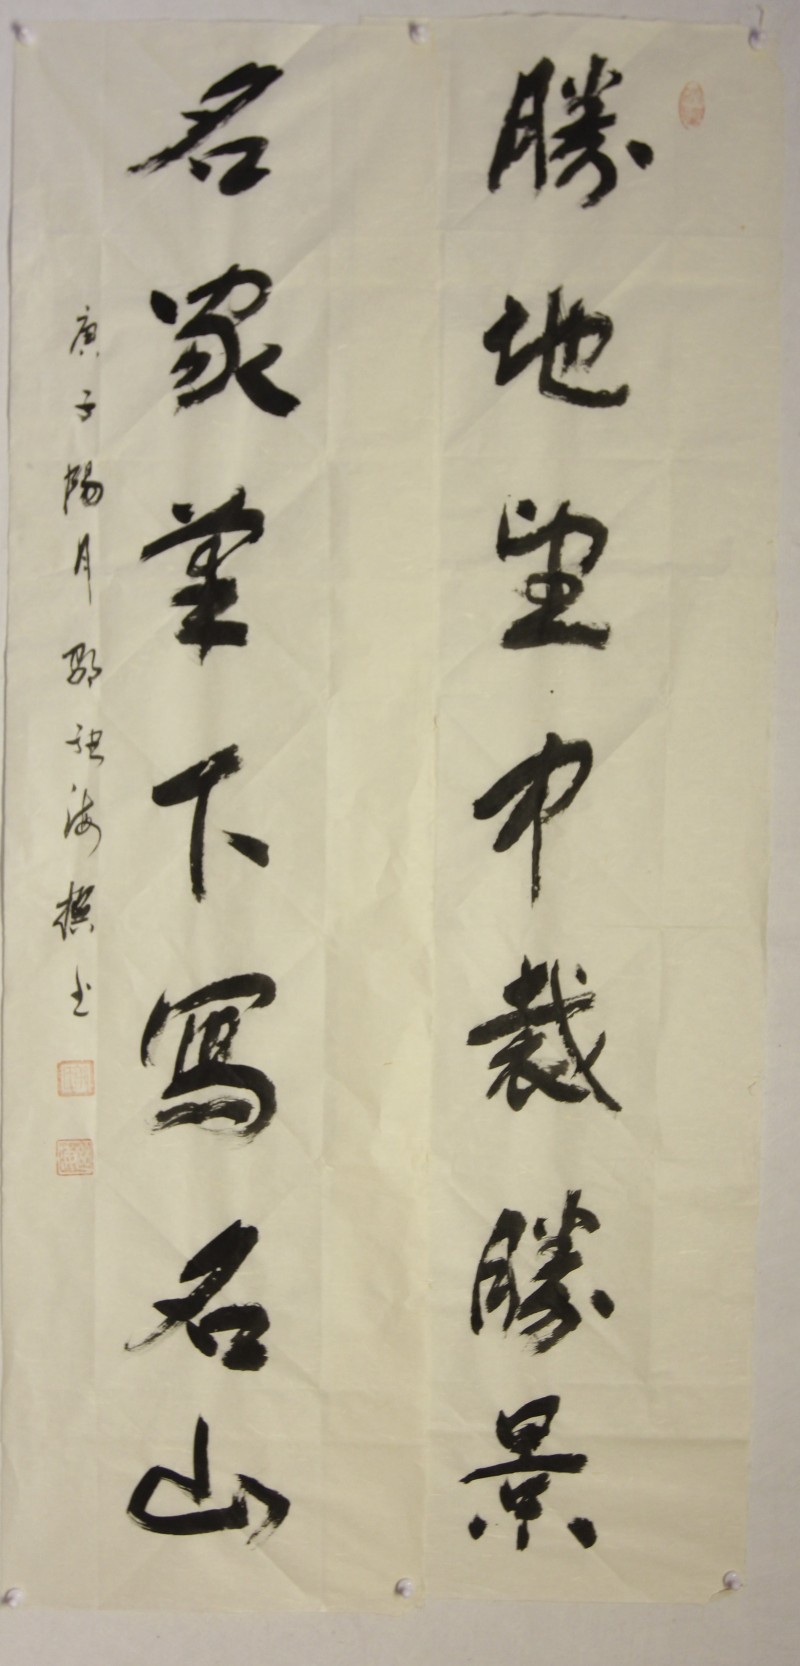 勝地望中裁勝景
名家筆下寫名山
庚子陽月鄒祖海撰書